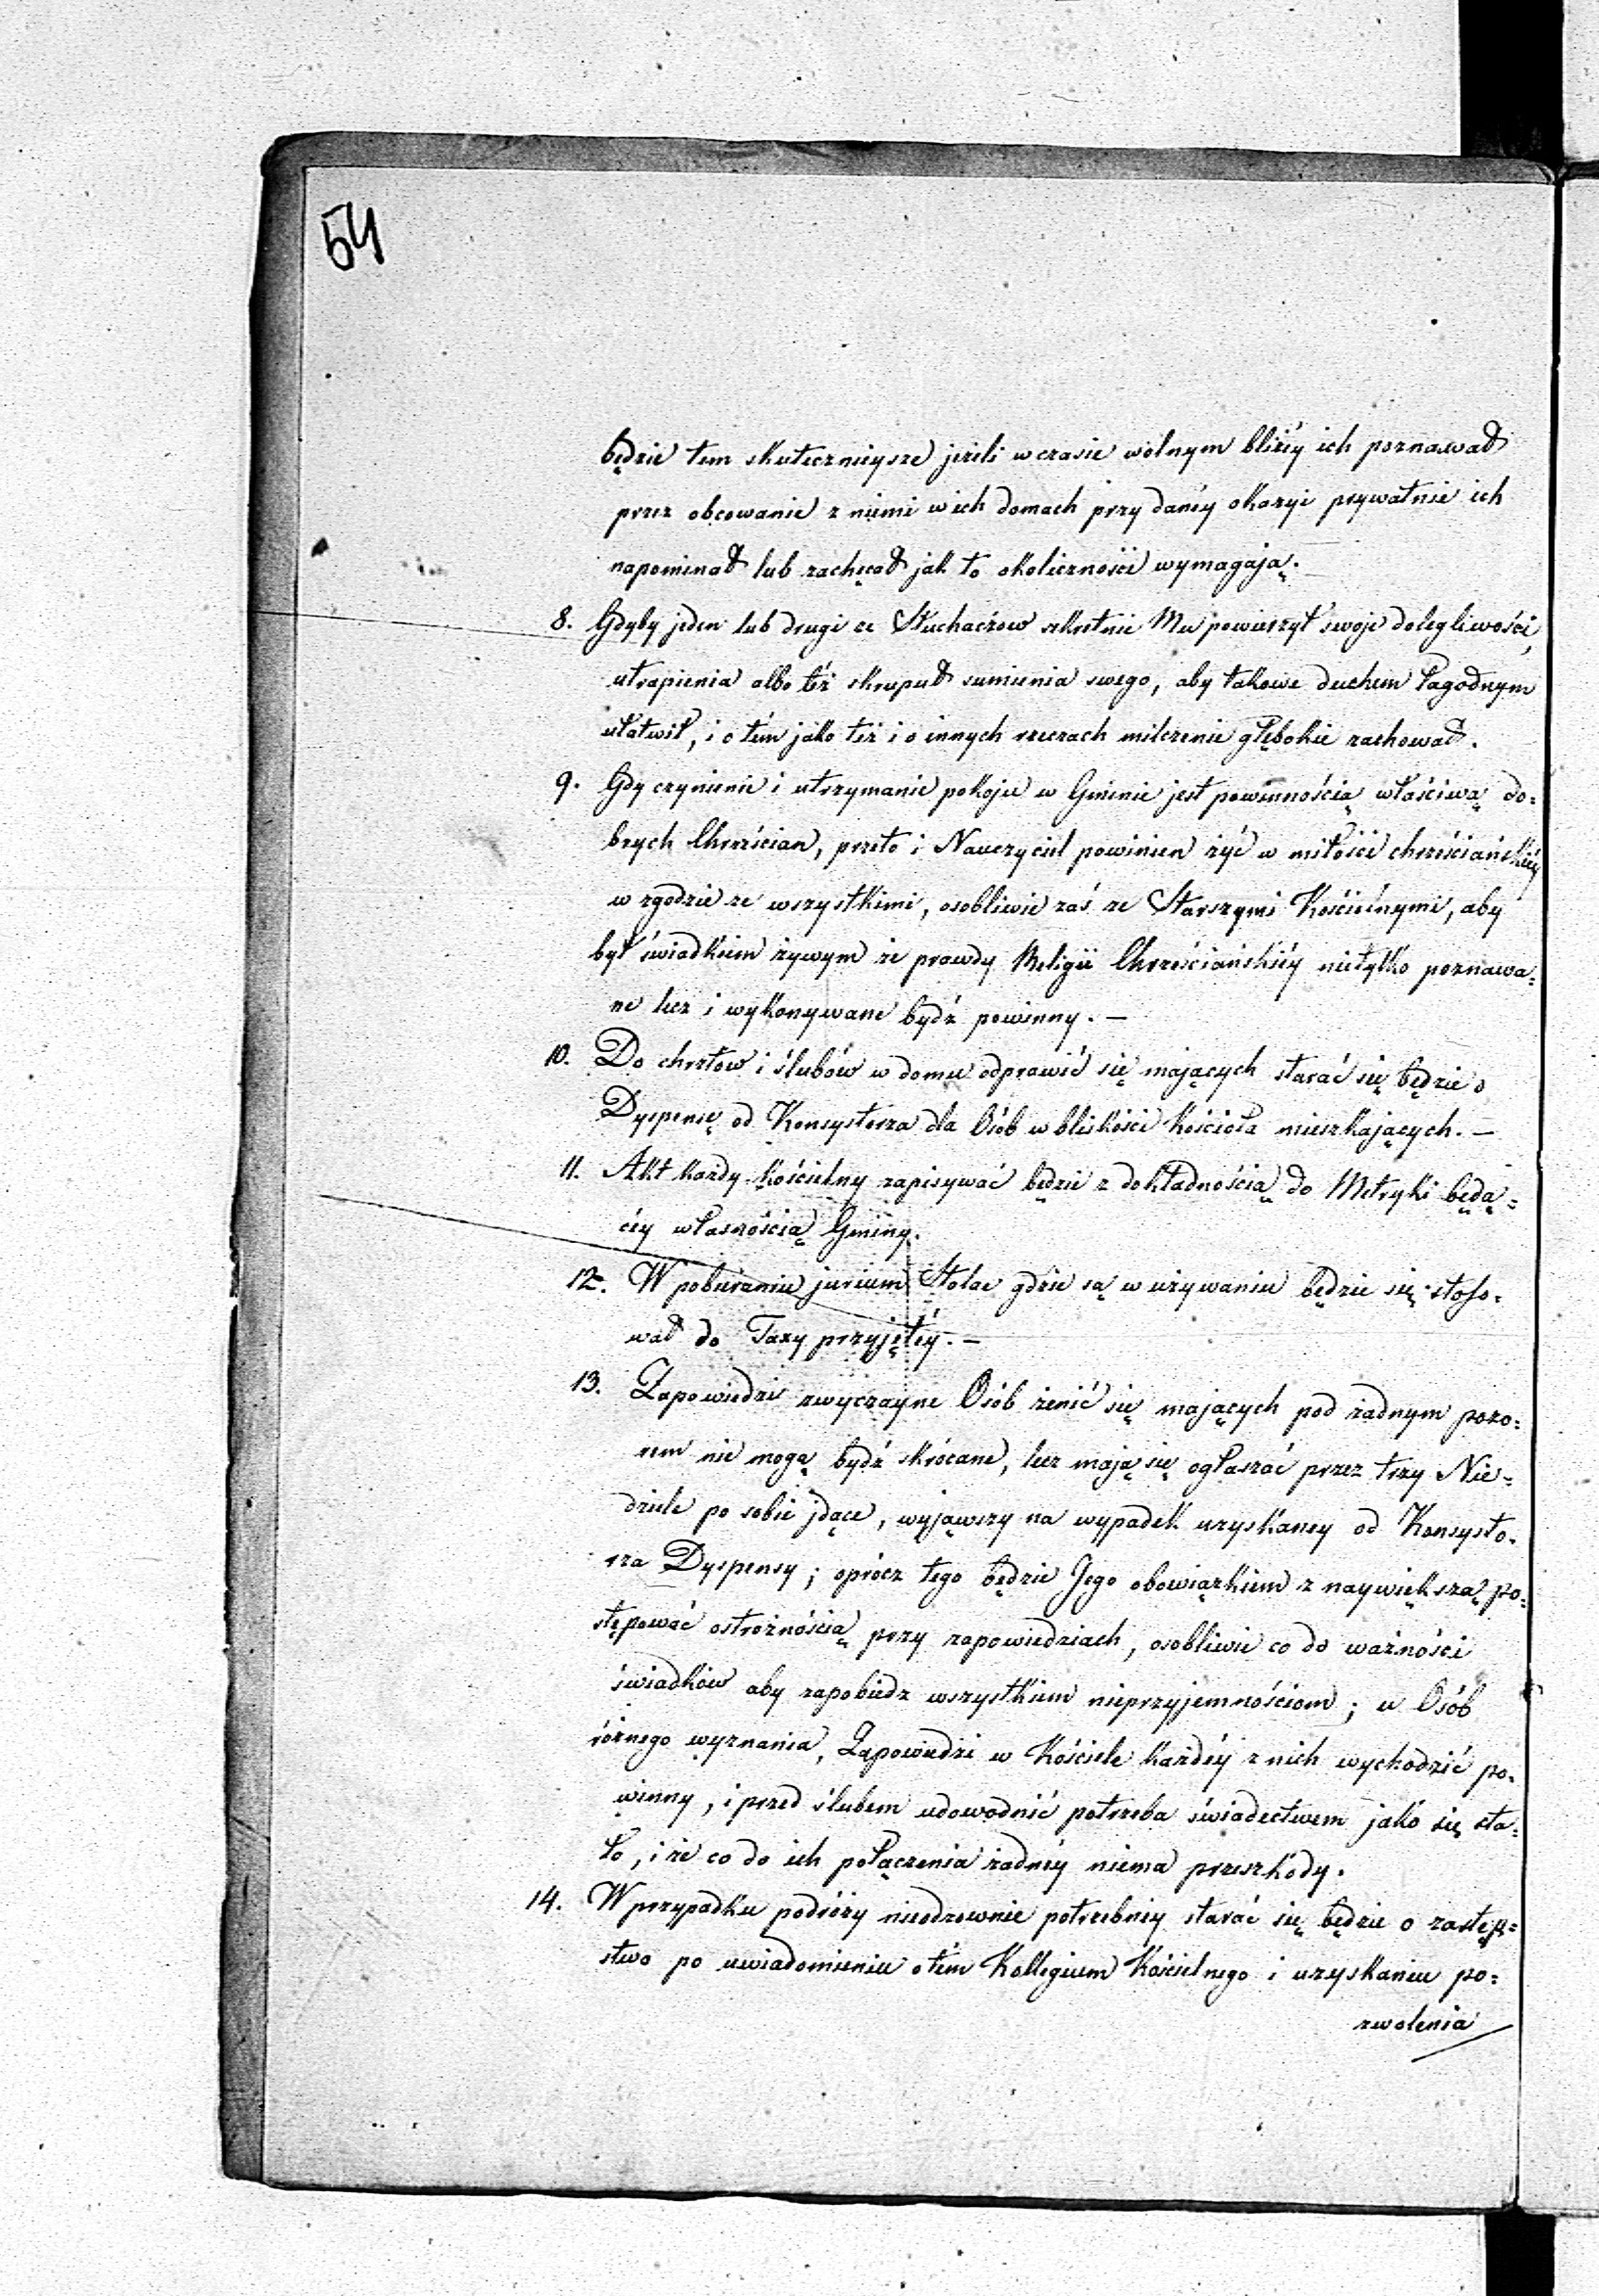 54
będzie tem skutecznieysze jeżeli w czasie wolnym bliżéy ich poznawać
przez obcowanie z niemi w ich domach przy danéy okazyi prywatnie ich
napominać lub zachęcać jak to okoliczności wymagają.
8. Gdyby jeden lub drugi ze Słuchaczow sekretnie Mu powierzył swoje dolegliwości,
utrapienia albo też skrupuł sumienia swego, aby takowe duchem łagodnym
ułatwił, i o tém jako też i o innych rzeczach milczenie głębokie zachował.
9. Gdy czynienie i utrzymanie pokoju w Gminie jest powinnością właściwą do=
brych Chrześcian, przeto i Nauczyciel powinien żyć w miłości chrześciańskiéy
w zgodzie ze wszystkimi, osobliwie zaś ze Starszymi Kościelnymi, aby
był świadkiem żywym że prawdy Religii Chrześciańskiéy nietylko poznawa=
ne lecz i wykonywane bydź powinny. —
10. Do chrztow i ślubów w domu odprawić się mających starać się będzie o
Dyspensę od Konsystorza dla Osób w bliskości kościoła mieszkających. —
11. Akt każdy kościelny zapisywać będzie z dokładnością do Metryki będą=
céy własnością Gminy.
12. W pobieraniu jurium Stolae gdzie są w używaniu będzie się stoso=
wać do Taxy przyjętéy. —
13. Zapowiedzi zwyczayne Osób żenić się mających pod żadnym pozo=
rem nie mogą bydź skrócane, lecz mają się ogłaszać przez trzy Nie=
dziele po sobie jdące, wyjąwszy na wypadek uzyskaney od Konsysto=
rza Dyspensy; oprócz tego będzie Jego obowiązkiem z naywiększą po=
stępować ostrożnością przy zapowiedziach, osobliwie co do ważności
świadków aby zapobiedz wszystkiem nieprzyjemnościom; u Osób
różnego wyznania, Zapowiedzi w Kościele każdéy z nich wychodzić po=
winny, i przed ślubem udowodnić potrzeba świadectwem jako się sta=
ło, i że co do ich połączenia żadnéy niema przeszkody.
14. W przypadku podróży nieodzownie potrzebney starać się będzie o zastęp=
stwo po uwiadomieniu o tém Kollegium Kościelnego i uzyskaniu po=
zwolenia